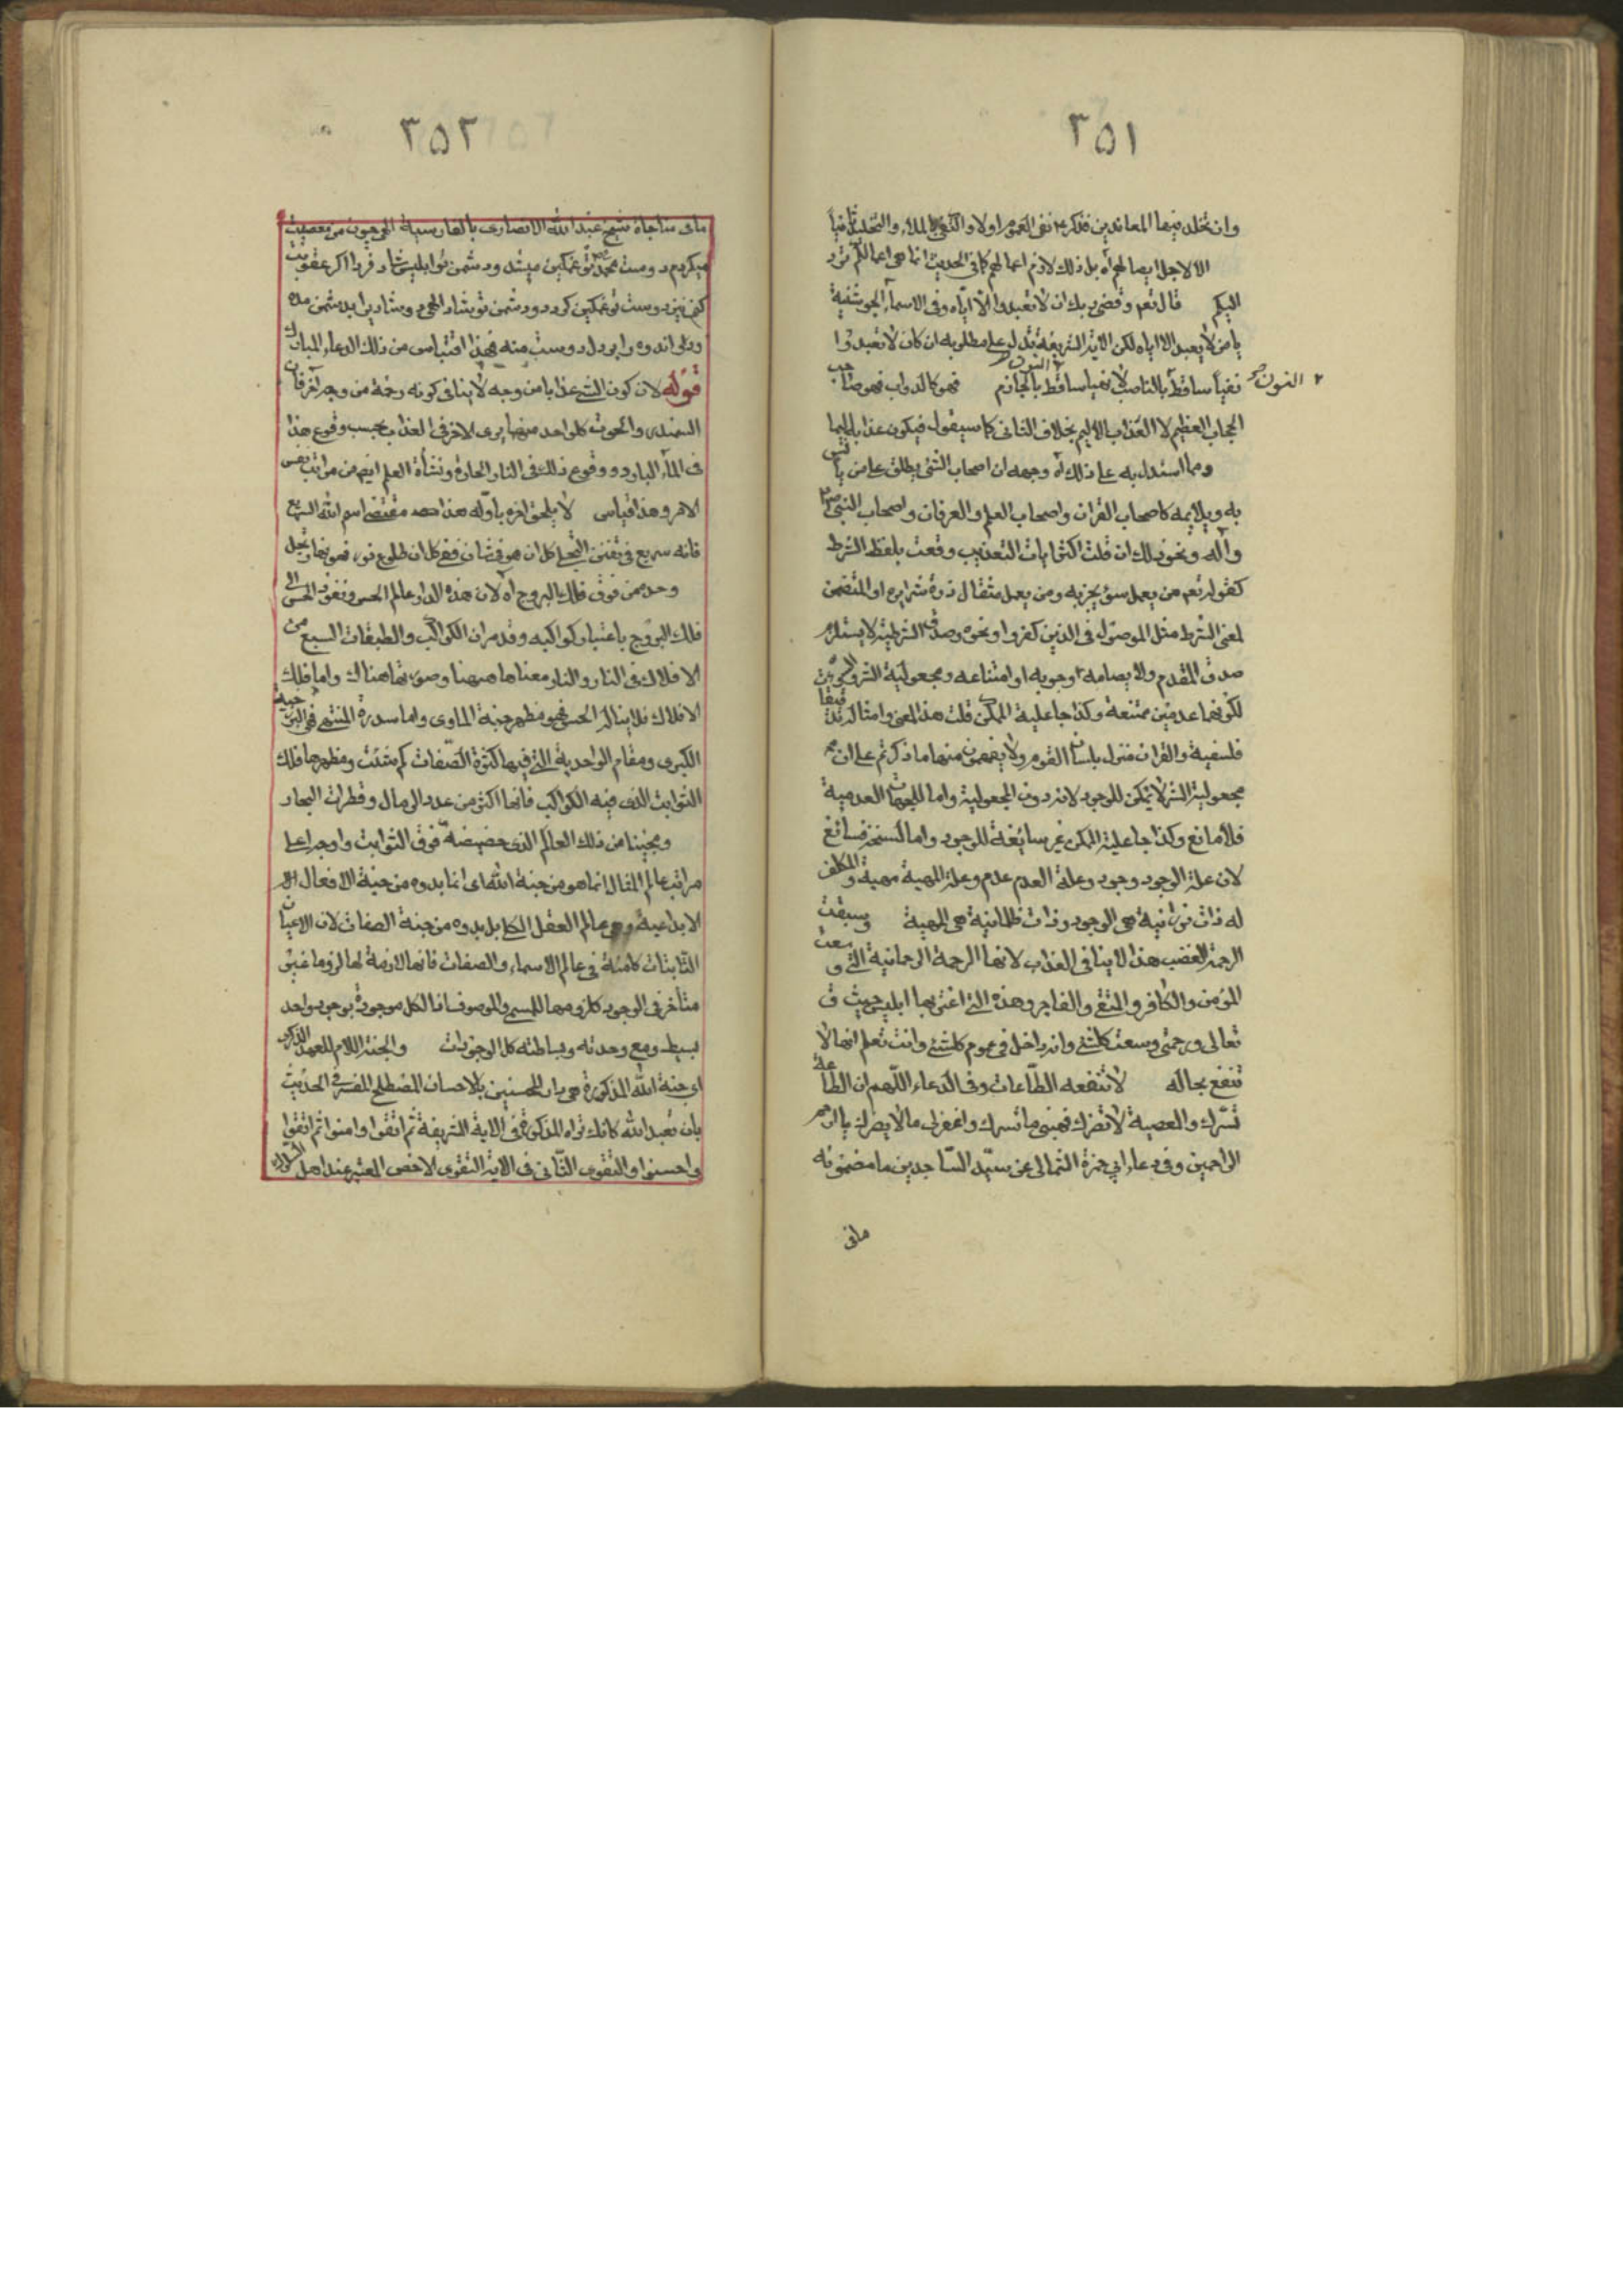 ٣٥١
وان تخلد فيها المعاندين فذكره نفى العموم اولا واكتفى بالملاء والتخليد ثانيا
الا لاجل ايصالهم آه بل ذلك لازم اعمالهم كما فى الحديث انما هى اعمالكم ترد
اليكم قال تعم وقضى ربك ان لا تعبدوا الا اياه وفى الاسماء الجوشنية
يا من لا يعبد الا اياه لكن الآية الشريفة تدل على مطلوبه ان كان لا تعبدوا
نفيا ساقطا بالناصب لا نهيا ساقط بالجازم فهو كالدواب فهو صاحب
النون
الحجاب العظيم لا العذاب الاليم بخلاف الثانى كما سيقول فيكون عذابا اليما
ومما استدل به على ذلك آه وجهه ان اصحاب الشئ يطلق على من يأنس
به ويلايمه كاصحاب القرآن واصحاب العلم والعرفان واصحاب النبى ص
وآله ونحو ذلك ان قلت اكثر آيات التعذيب وقعت بلفظ الشرط
كقوله تعم من يعمل سوء يجز به ومن يعمل مثقال ذرة شرا يره او المتضمن
لمعنى الشرط مثل الموصول فى الذين كفروا ونحوه وصدق الشرطية لا يستلزم
صدق المقدم ولا يصامه وجوبه او امتناعه ومجعولية الشر والكون
لكونهما عدميين ممتنعة وكذا جاعلية الممكن قلت هذا المعنى وامثاله تدقيقات
فلسفية والقرآن منزل بلسان القوم ولا يفهمون منها ما ذكرتم على ان
مجعولية الشر لا يمكن للوجود لانه دون المجعولية واما للمهيات العدمية
فلا مانع وكذا جاعلية الممكن غير سايغة للوجود واما لسنخه فسائغ
لان علة الوجود وجود وعلة العدم عدم وعلة المهية مهية والمكلف
له ذات نورانية هى الوجود وذات ظلمانية هى المهية وسبقت
الرحمة الغضب هذا لا ينافى العذاب لانها الرحمة الرحمانية التى وسعت
المؤمن والكافر والتقى والفاجر وهذه التى اغتر بها ابليس حيث ق
تعالى ورحمتى وسعت كل شئ وانه داخل فى عموم كل شئ وانت تعلم انها لا
تنفع بحاله لا تنفعه الطاعات وفى الدعاء اللهم ان الطاعة
تسرك والمعصية لا تضرك فهبنى ما تسرك واغفر لى ما لا يضرك يا ارحم
الراحمين وفى دعاء ابى حمزة الثمالى عن سيد الساجدين ما مضمونه
مافى
٣٥٢
مافى مناجاة شيخ عبد الله الانصارى بالفارسية الهى چون من معصيت
ميكردم دوست تو محمد ص غمگين ميشد ودشمن تو ابليس شاد فردا اگر عقوبت
كنى نيز دوست تو غمگين گردد ودشمن تو شاد الهى دو شادى بدشمن مده
ودو اندوه را بر دل دوست منه فهذا اقتباس من ذلك الدعاء المبارك
قوله لان كون الشئ عذابا من وجه لا ينافى كونه رحمة من وجه آخر فان
السمندر والحوت كل واحد منهما يرى الاخر فى العذاب بحسب وقوع هذا
فى الماء البارد ووقوع ذلك فى النار الحارة ونشأة العلم ايضا من مراتب نفس
الامر وهذا قياس لا يلحق اخره باوله هذا مقتضى اسم الله السريع
فانه سريع فى تفنن التجلى كل ان هو فى شان ففى كل ان طلوع نور فهو نهار وتجلى
وحده من فوق فلك البروج آه لان هذه الدار عالم الحس ونفوذ الحس الى
فلك البروج باعتبار كواكبه وقد مر ان الكواكب والطبقات السبع من
الافلاك فى النار والنار معناها ههنا وصورتها هناك واما فلك
الافلاك فلا يناله الحس فهو مظهر جنة الماوى واما سدرة المنتهى فهى البرزخية
الكبرى ومقام الواحدية التى فيها كثرة الصفات كم شئت ومظهرها فلك
الثوابت الذى فيه الكواكب فانها اكثر من عدد الرمال وقطرات البحار
ومجيئنا من ذلك العالم الذى حضيضه فوق الثوابت واوجه اعلى
مراتب عالم المثال انما هو من جنة الله اى انما بدوه من جنة الافعال اى
الابداعية وهى عالم العقل الكلى بل بدوه من جنة الصفات لان الاعيان
الثابتات كامنة فى عالم الاسماء والصفات فانها لازمة لها لزوما غير
متأخر فى الوجود كلزومها للمسمى والموصوف فالكل موجودة بوجود واحد
بسيط ومع وحدته وبساطته كل الوجودات والجنة اللام للعهد الذكرى
اى جنة الله المذكورة هى دار المحسنين بالاحسان المصطلح المفسر فى الحديث
بان تعبد الله كانك تراه المذكورة فى الآية الشريفة ثم اتقوا وامنوا ثم اتقوا
واحسنوا والتقوى الثانى فى الآية التقوى الاخص المعتبر عند اهل السلوك